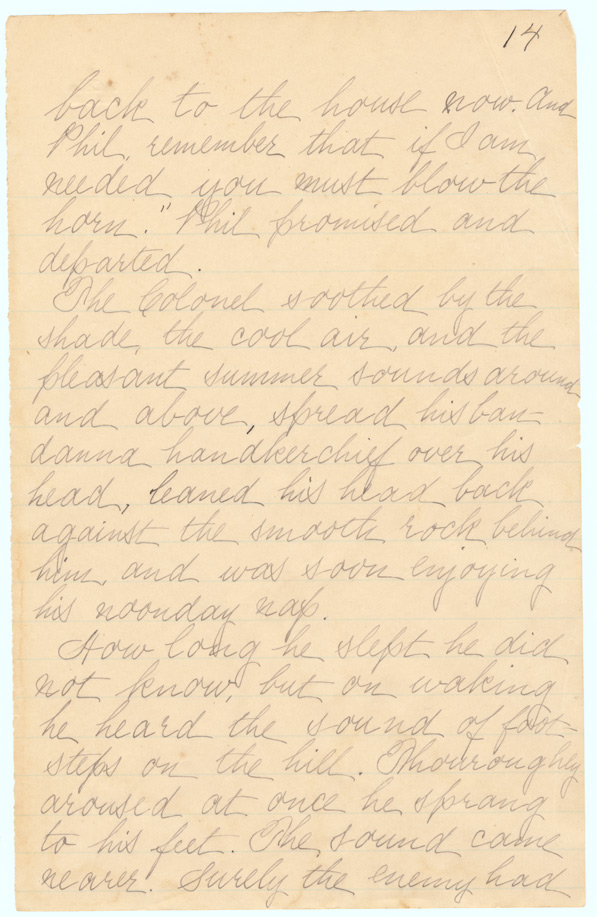 14
back to the house now. And
Phil, remember that if I am
needed you must blow the
horn." Phil promised and
departed.
The Colonel soothed by the
shade, the cool air, and the
pleasant summer sounds around
and above, spread his ban-
danna handkerchief over his
head, leaned his head back
against the smooth rock behind
him, and was soon enjoying
his noonday nap.
How long he slept he did
not know, but on waking
he heard the sound of foot-
steps on the hill. Thouroughly
aroused at once he sprang
to his feet. The sound came
nearer. Surely the enemy had